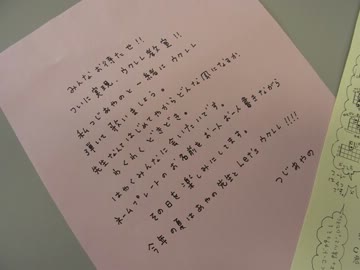 みんなお待たせ!!
ついに実現、ウクレレ教室!!
私つじあやのと一緒にウクレレ
弾いて歌いましょう。
先生なんてはじめてやからどんな風になるか、
わくわくどきどき。
はやくみんなに会いたいです。
ネームプレートのお名前をボードに書きながら
その日を楽しみにします。
今年の夏はあやの先生とLet'sウクレレ!!!!
つじあやの